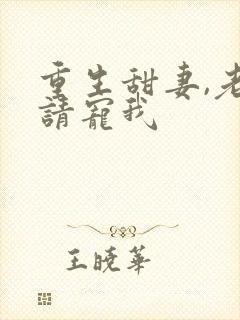 重生甜妻,老
請寵我
王曉華